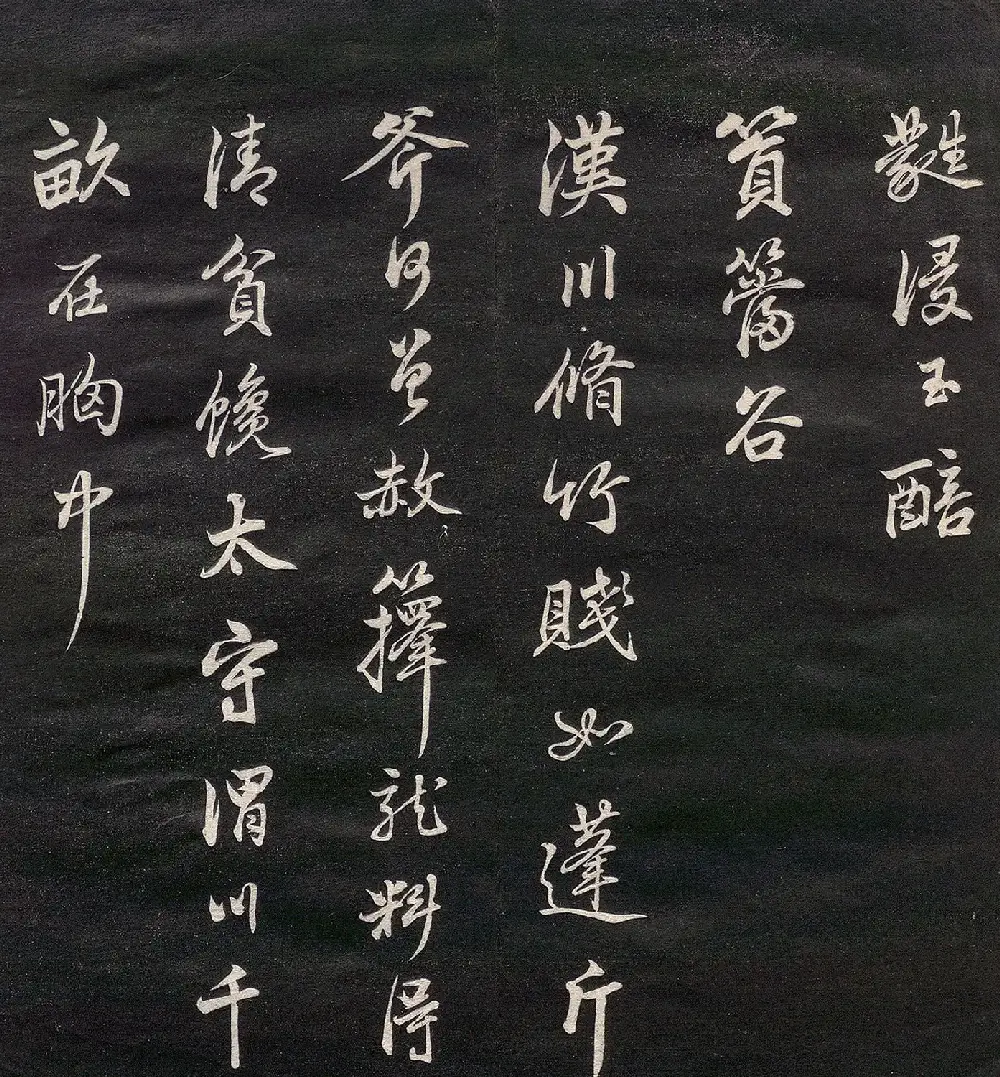 蕤浸玉醅
篔簹谷
漢川脩竹賤如蓬斤
斧何曾赦籜龍料得
清貧饞太守渭川千
畝在胸中